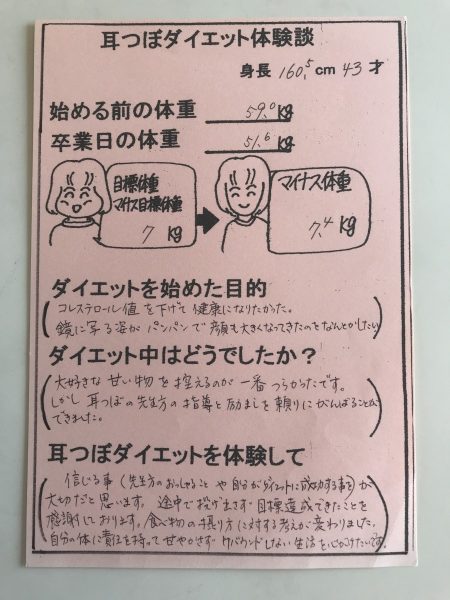 耳つぼダイエット体験談
身長 160.5cm 43才
始める前の体重 59.0kg
卒業日の体重 51.6kg
目標体重
マイナス目標体重
7 kg
マイナス体重
7.4 kg
ダイエットを始めた目的
コレステロール値を下げて健康になりたかった。
鏡に写る姿がパンパンで顔も大きくなってきたのをなんとかしたい
ダイエット中はどうでしたか?
大好きな甘い物を控えるのが一番つらかったです。
しかし耳つぼの先生方の指導と励ましを頼りにがんばることが
できました。
耳つぼダイエットを体験して
信じる事(先生方のおっしゃることや自分がダイエットに成功する事を)が
大切だと思います。途中で投げ出さず目標達成できたことを
感謝しております。食べ物の摂り方に対する考えが変わりました。
自分の体に責任を持って甘やかさずリバウンドしない生活を心がけたいです。